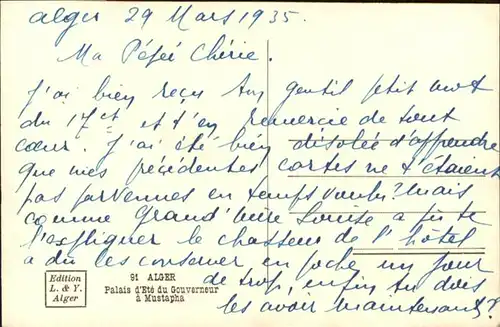 Alger 29 Mars 1935.
Ma Péfée Chérie.
J'ai bien reçu ton gentil petit mot
du 17ct et t'en remercie de tout
cœur. J'ai été bien désolée d'apprendre
que mes précédentes cartes ne t'étaient
pas parvenues en temps voulu? mais
comme Grand'Mère Louise a pu te
l'expliquer le chasseur de l'hôtel
a du les conserver en poche un jour
de trop, enfin tu dois
les avoir maintenant?
Edition
L. & Y.
Alger
91 ALGER
Palais d'Eté du Gouverneur
à Mustapha